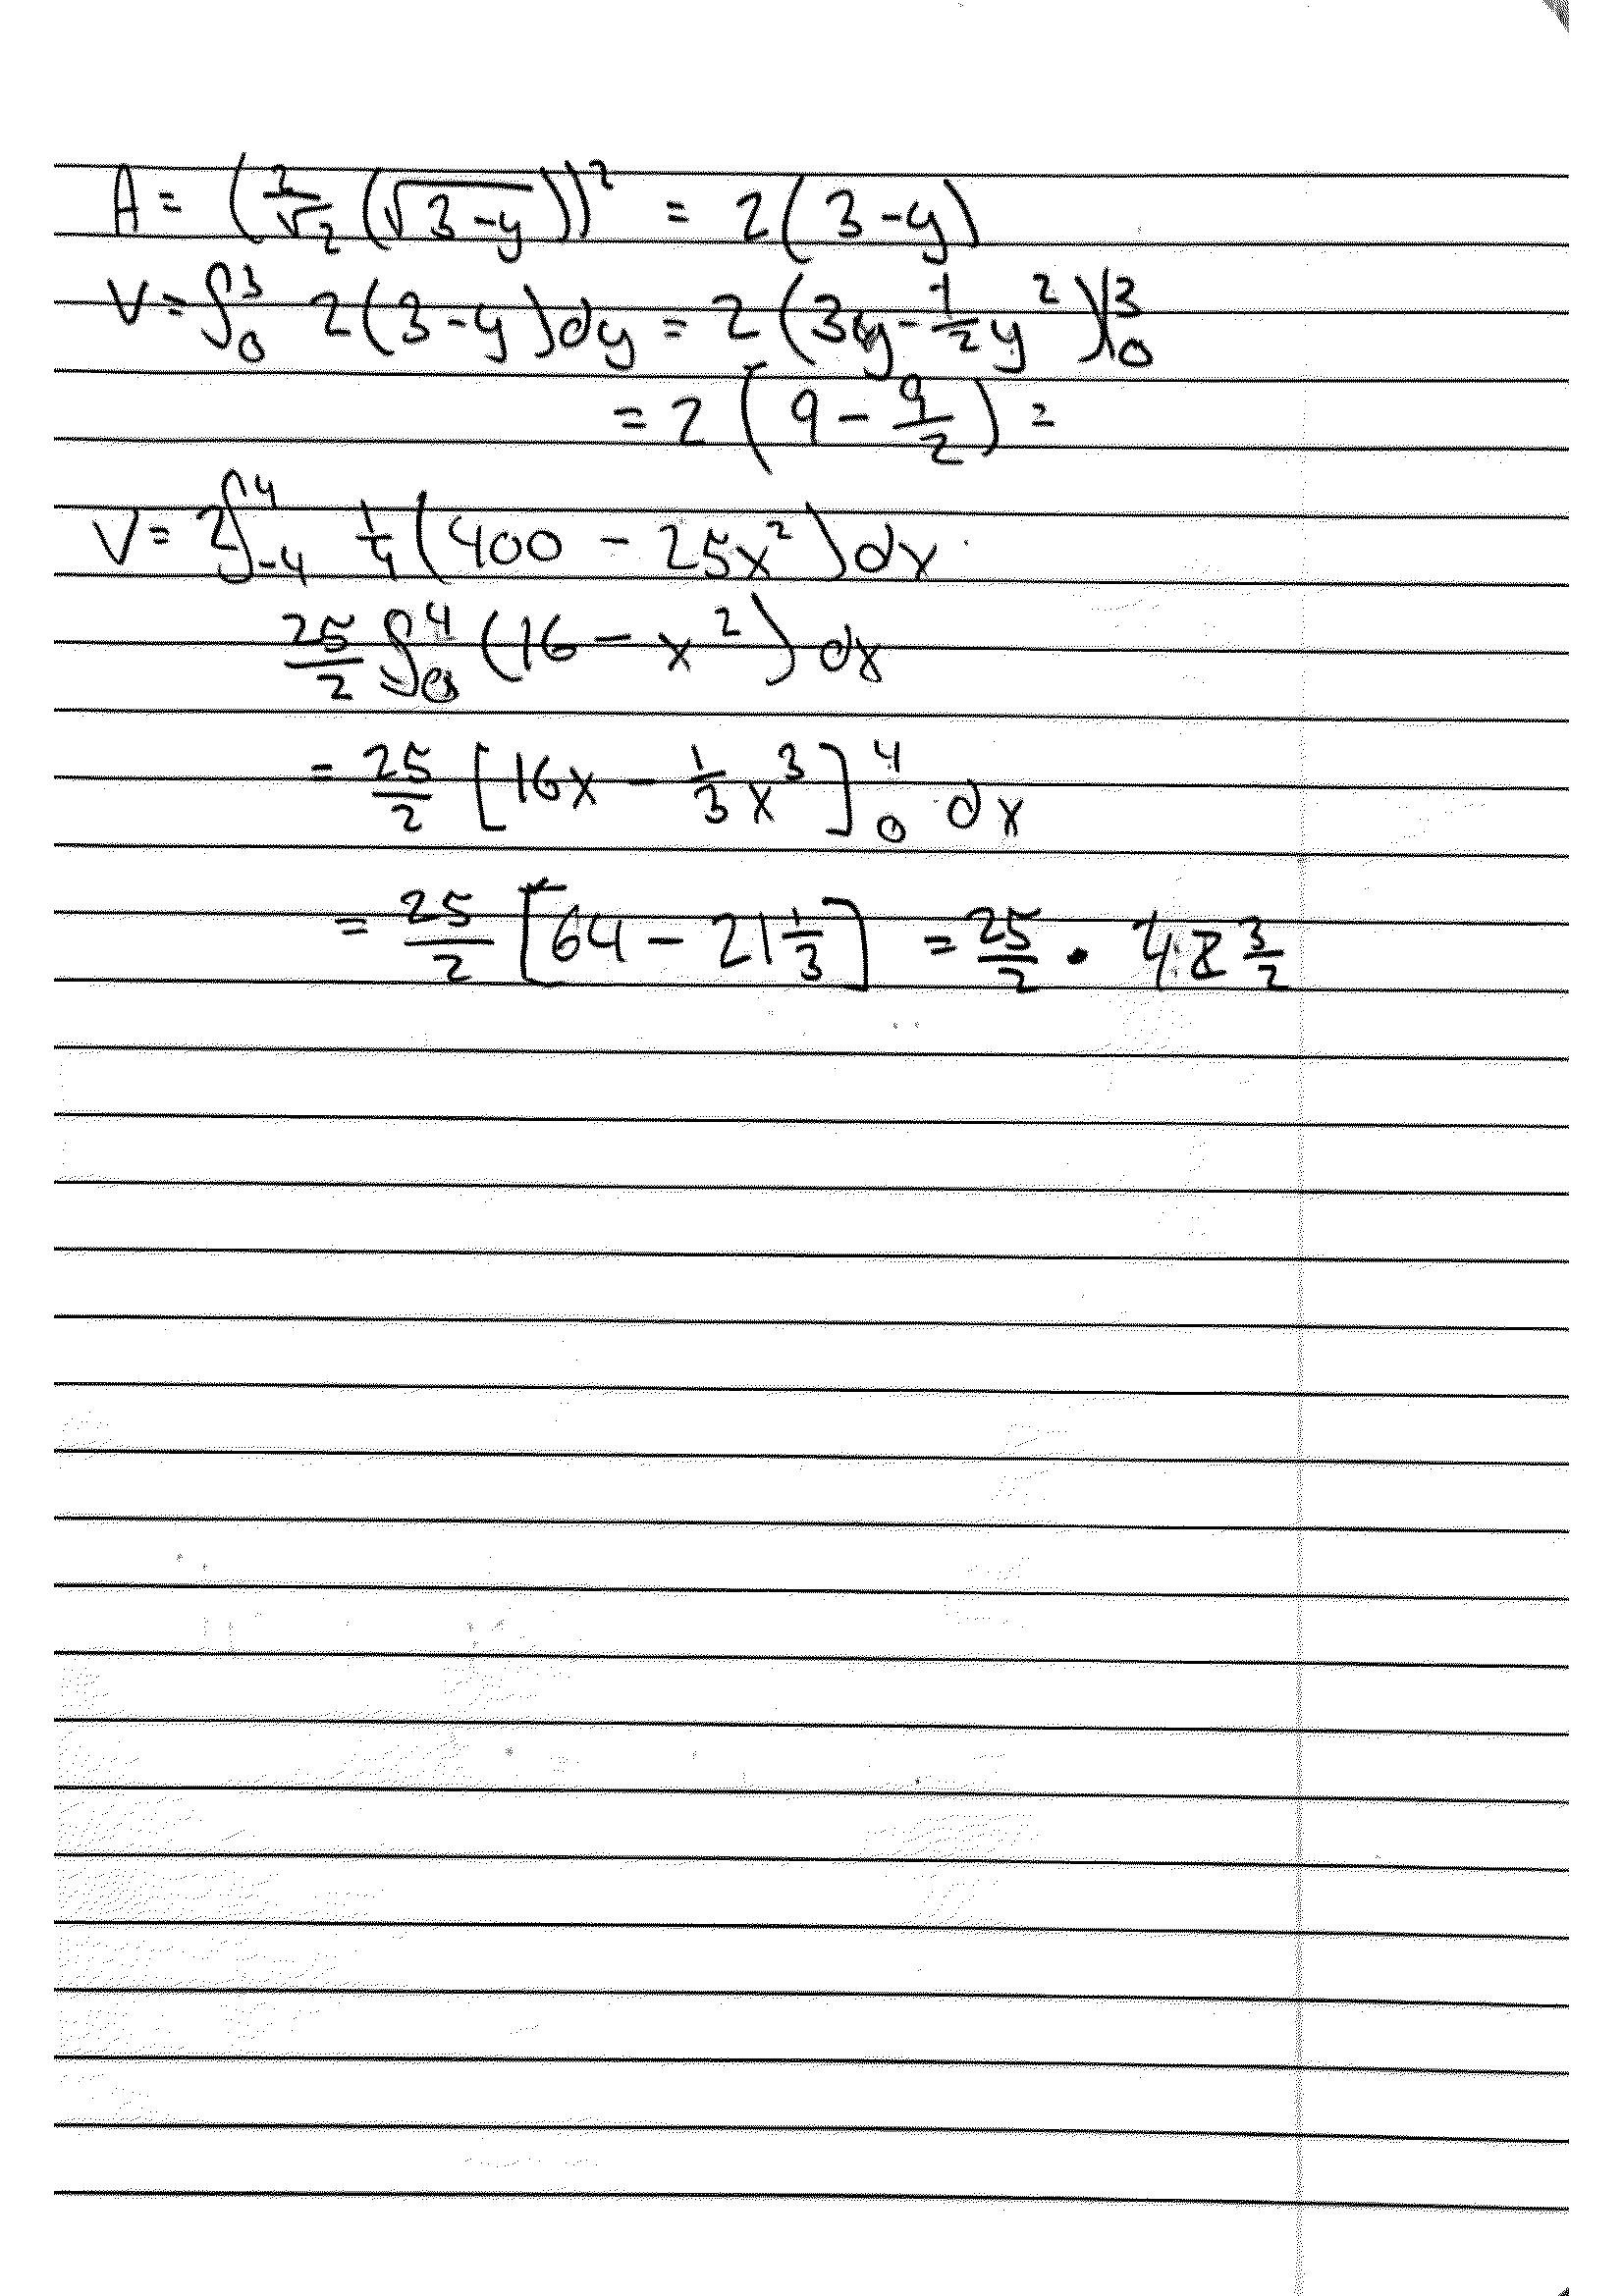 A = (2/√2 (√(3-y)))² = 2(3-y)
V = ∫₀³ 2(3-y)dy = 2(3y - 1/2 y²)|₀³
= 2(9 - 9/2) =
V = 2∫₋₄⁴ 1/4(400 - 25x²)dx
25/2 ∫₀⁴ (16 - x²)dx
= 25/2 [16x - 1/3 x³]₀⁴ dx
= 25/2 [64 - 21 1/3] = 25/2 ·